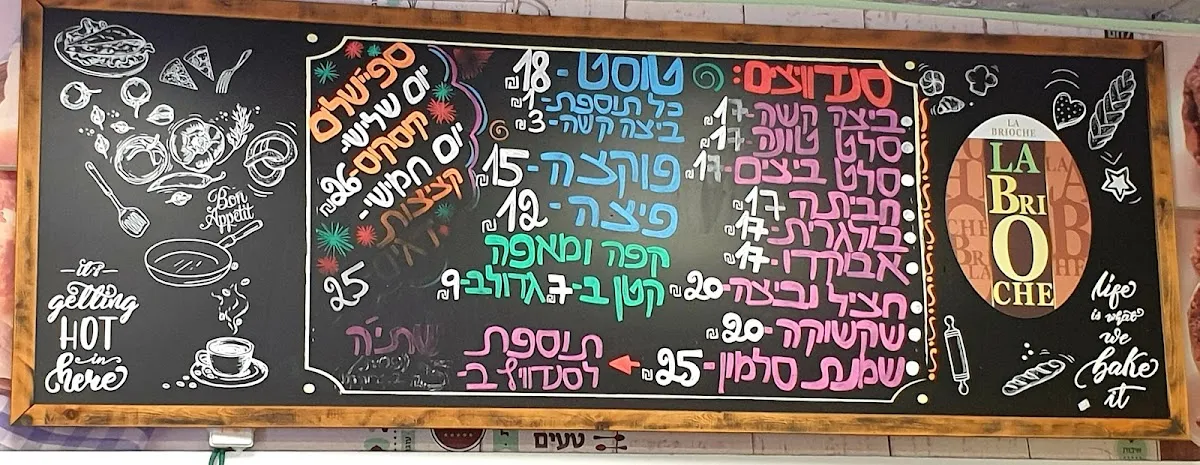 סנדוויצים:
ביצה קשה-17₪
סלט טונה-17₪
סלט ביצים-17₪
חביתה-17₪
בולגרית-17₪
אבוקדו-17₪
חציל וביצה-20₪
שקשוקה-20₪
שמנת סלמון-25₪
טוסט-18₪
כל תוספת-1₪
ביצה קשה-3₪
פוקצה-15₪
פיצה-12₪
קפה ומאפה
קטן ב-7 גדול ב-9
תוספת
לסנדוויץ ב
שתיה
ספיישלים
יום שלישי-
קוסקוס-26₪
יום חמישי-
קציצות
25
Bon
Appetit
it's
getting
HOT
in
here
LA
BRIOCHE
LA
BRI
O
CHE
life
is what
we
bake
it
טעים